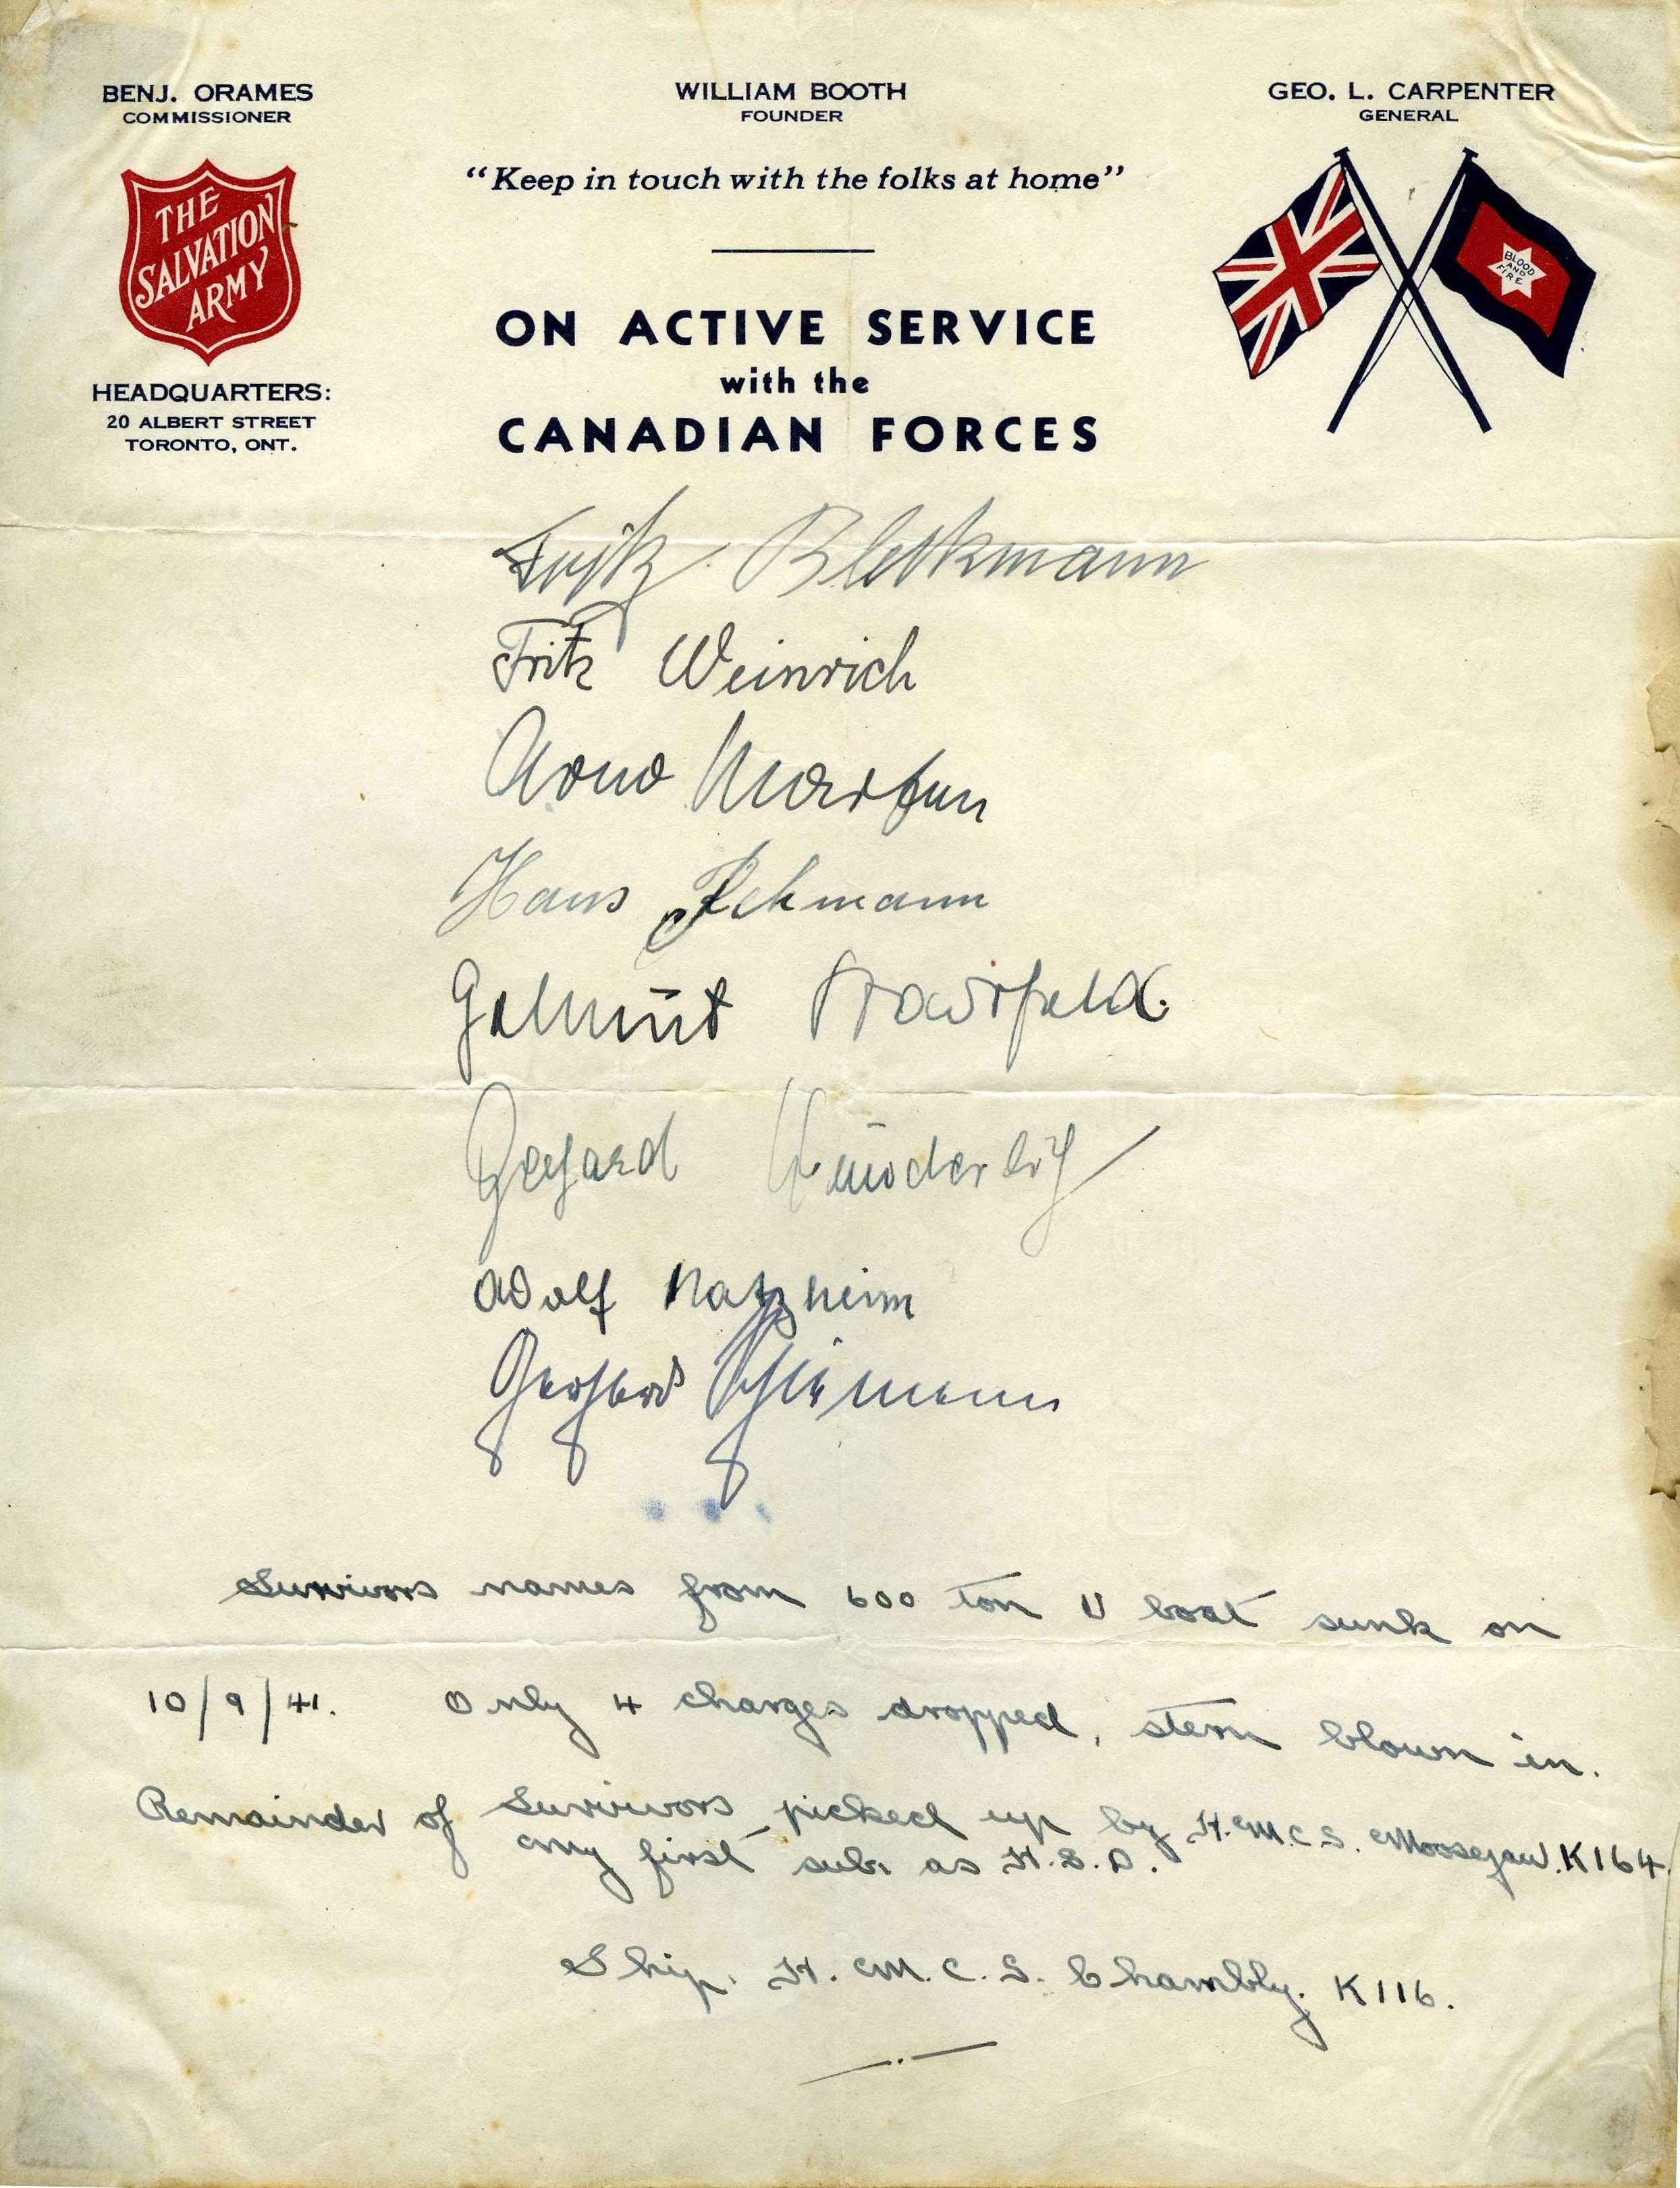 BENJ. ORAMES
COMMISSIONER
WILLIAM BOOTH
FOUNDER
GEO. L. CARPENTER
GENERAL
"Keep in touch with the folks at home"
THE
SALVATION
ARMY
BLOOD
AND
FIRE
ON ACTIVE SERVICE
with the
CANADIAN FORCES
HEADQUARTERS:
20 ALBERT STREET
TORONTO, ONT.
Fritz
Fritz Weinrich
Arno
Hans
Gerhard
Adolf
Gerhard
Survivors names from 600 ton U boat sunk on
10/9/41. Only 4 charges dropped, stern blown in.
Remainder of Survivors picked up by H.M.C.S. Moosejaw. K164.
my first sub. as H.S.D.
Ship. H.M.C.S. Chambly. K116.